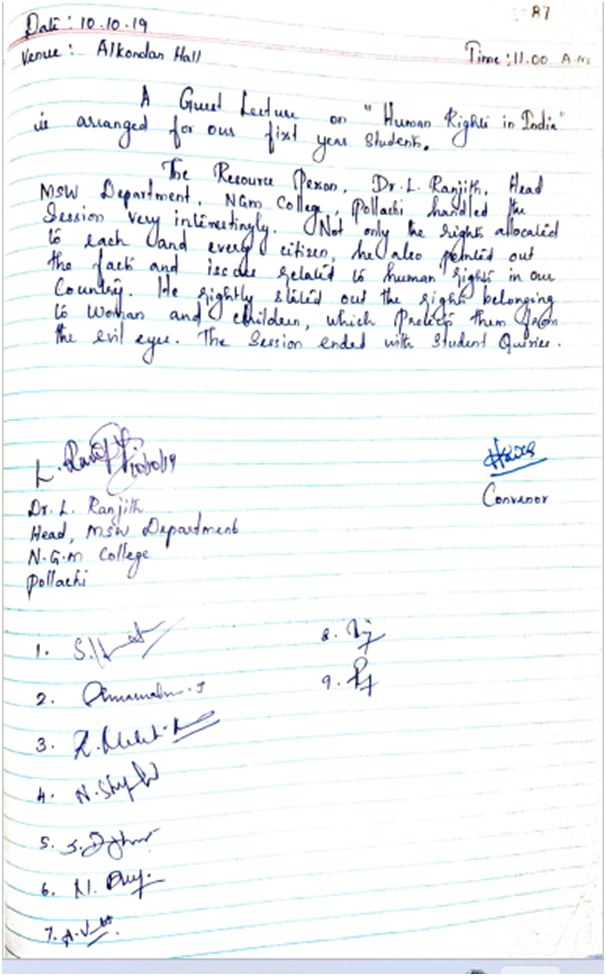 87
Date : 10.10.19
Venue : Alkondan Hall
Time : 11.00 A.M
A Guest Lecture on "Human Rights in India"
is arranged for our first year students.
The Resource Person, Dr. L. Ranjith, Head
MSW Department, NGM College, Pollachi handled the
Session very interestingly. Not only the rights allocated
to each and every citizen, he also pointed out
the fact and issues related to human rights in our
Country. He rightly stated out the rights belonging
to woman and children, which protects them from
the evil eyes. The Session ended with student Queries.
10/10/19
Dr. L. Ranjith
Convenor
Head, MSW Department
N.G.M College
Pollachi
1.
8.
2.
9.
3.
4.
5.
6.
7.